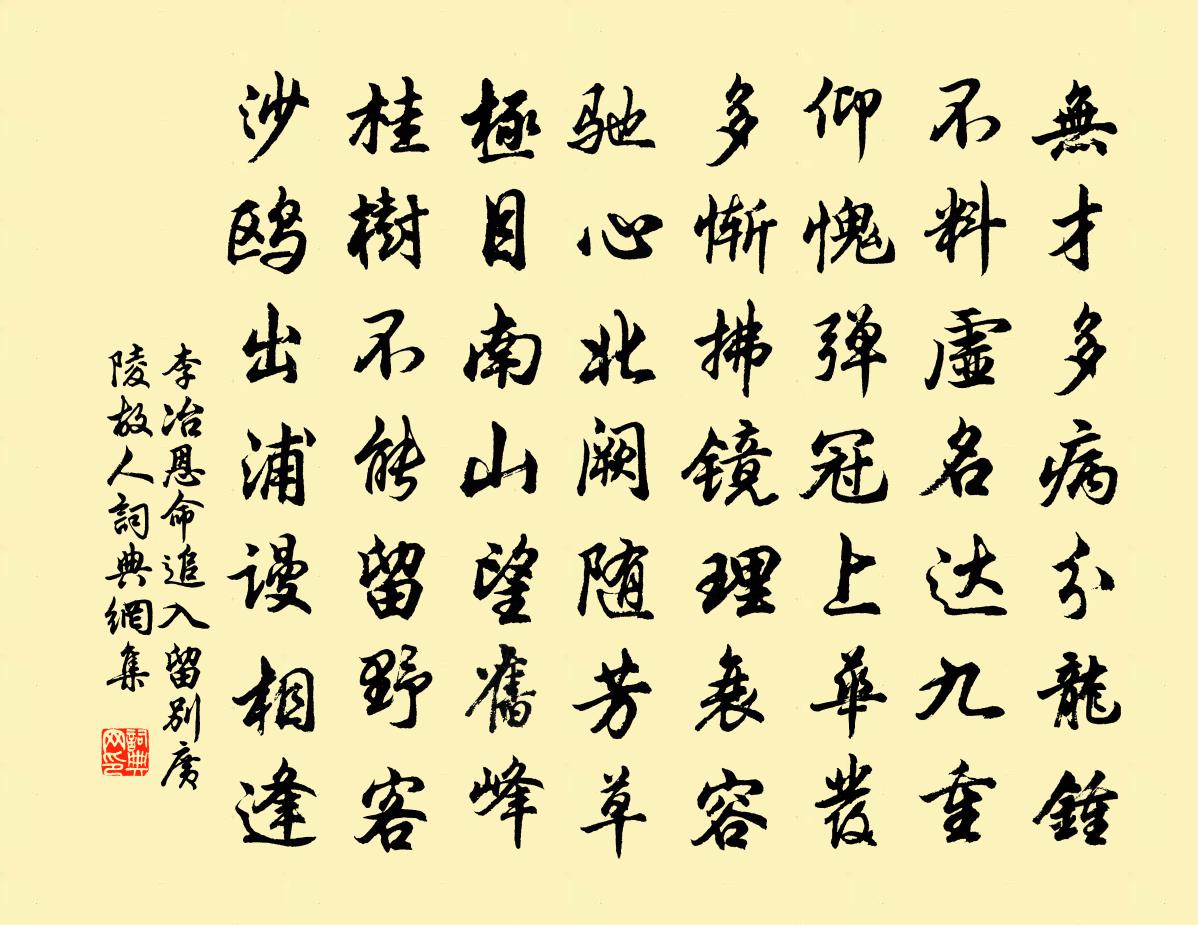 無才多病分龍鍾
不料虛名达九重
仰愧弹冠上華發
多惭拂镜理衰容
驰心北阙随芳草
極目南山望舊峰
桂樹不能留野客
沙鸥出浦谩相逢
李冶恩命追入留別廣
陵故人詞典網集
詞典
网印